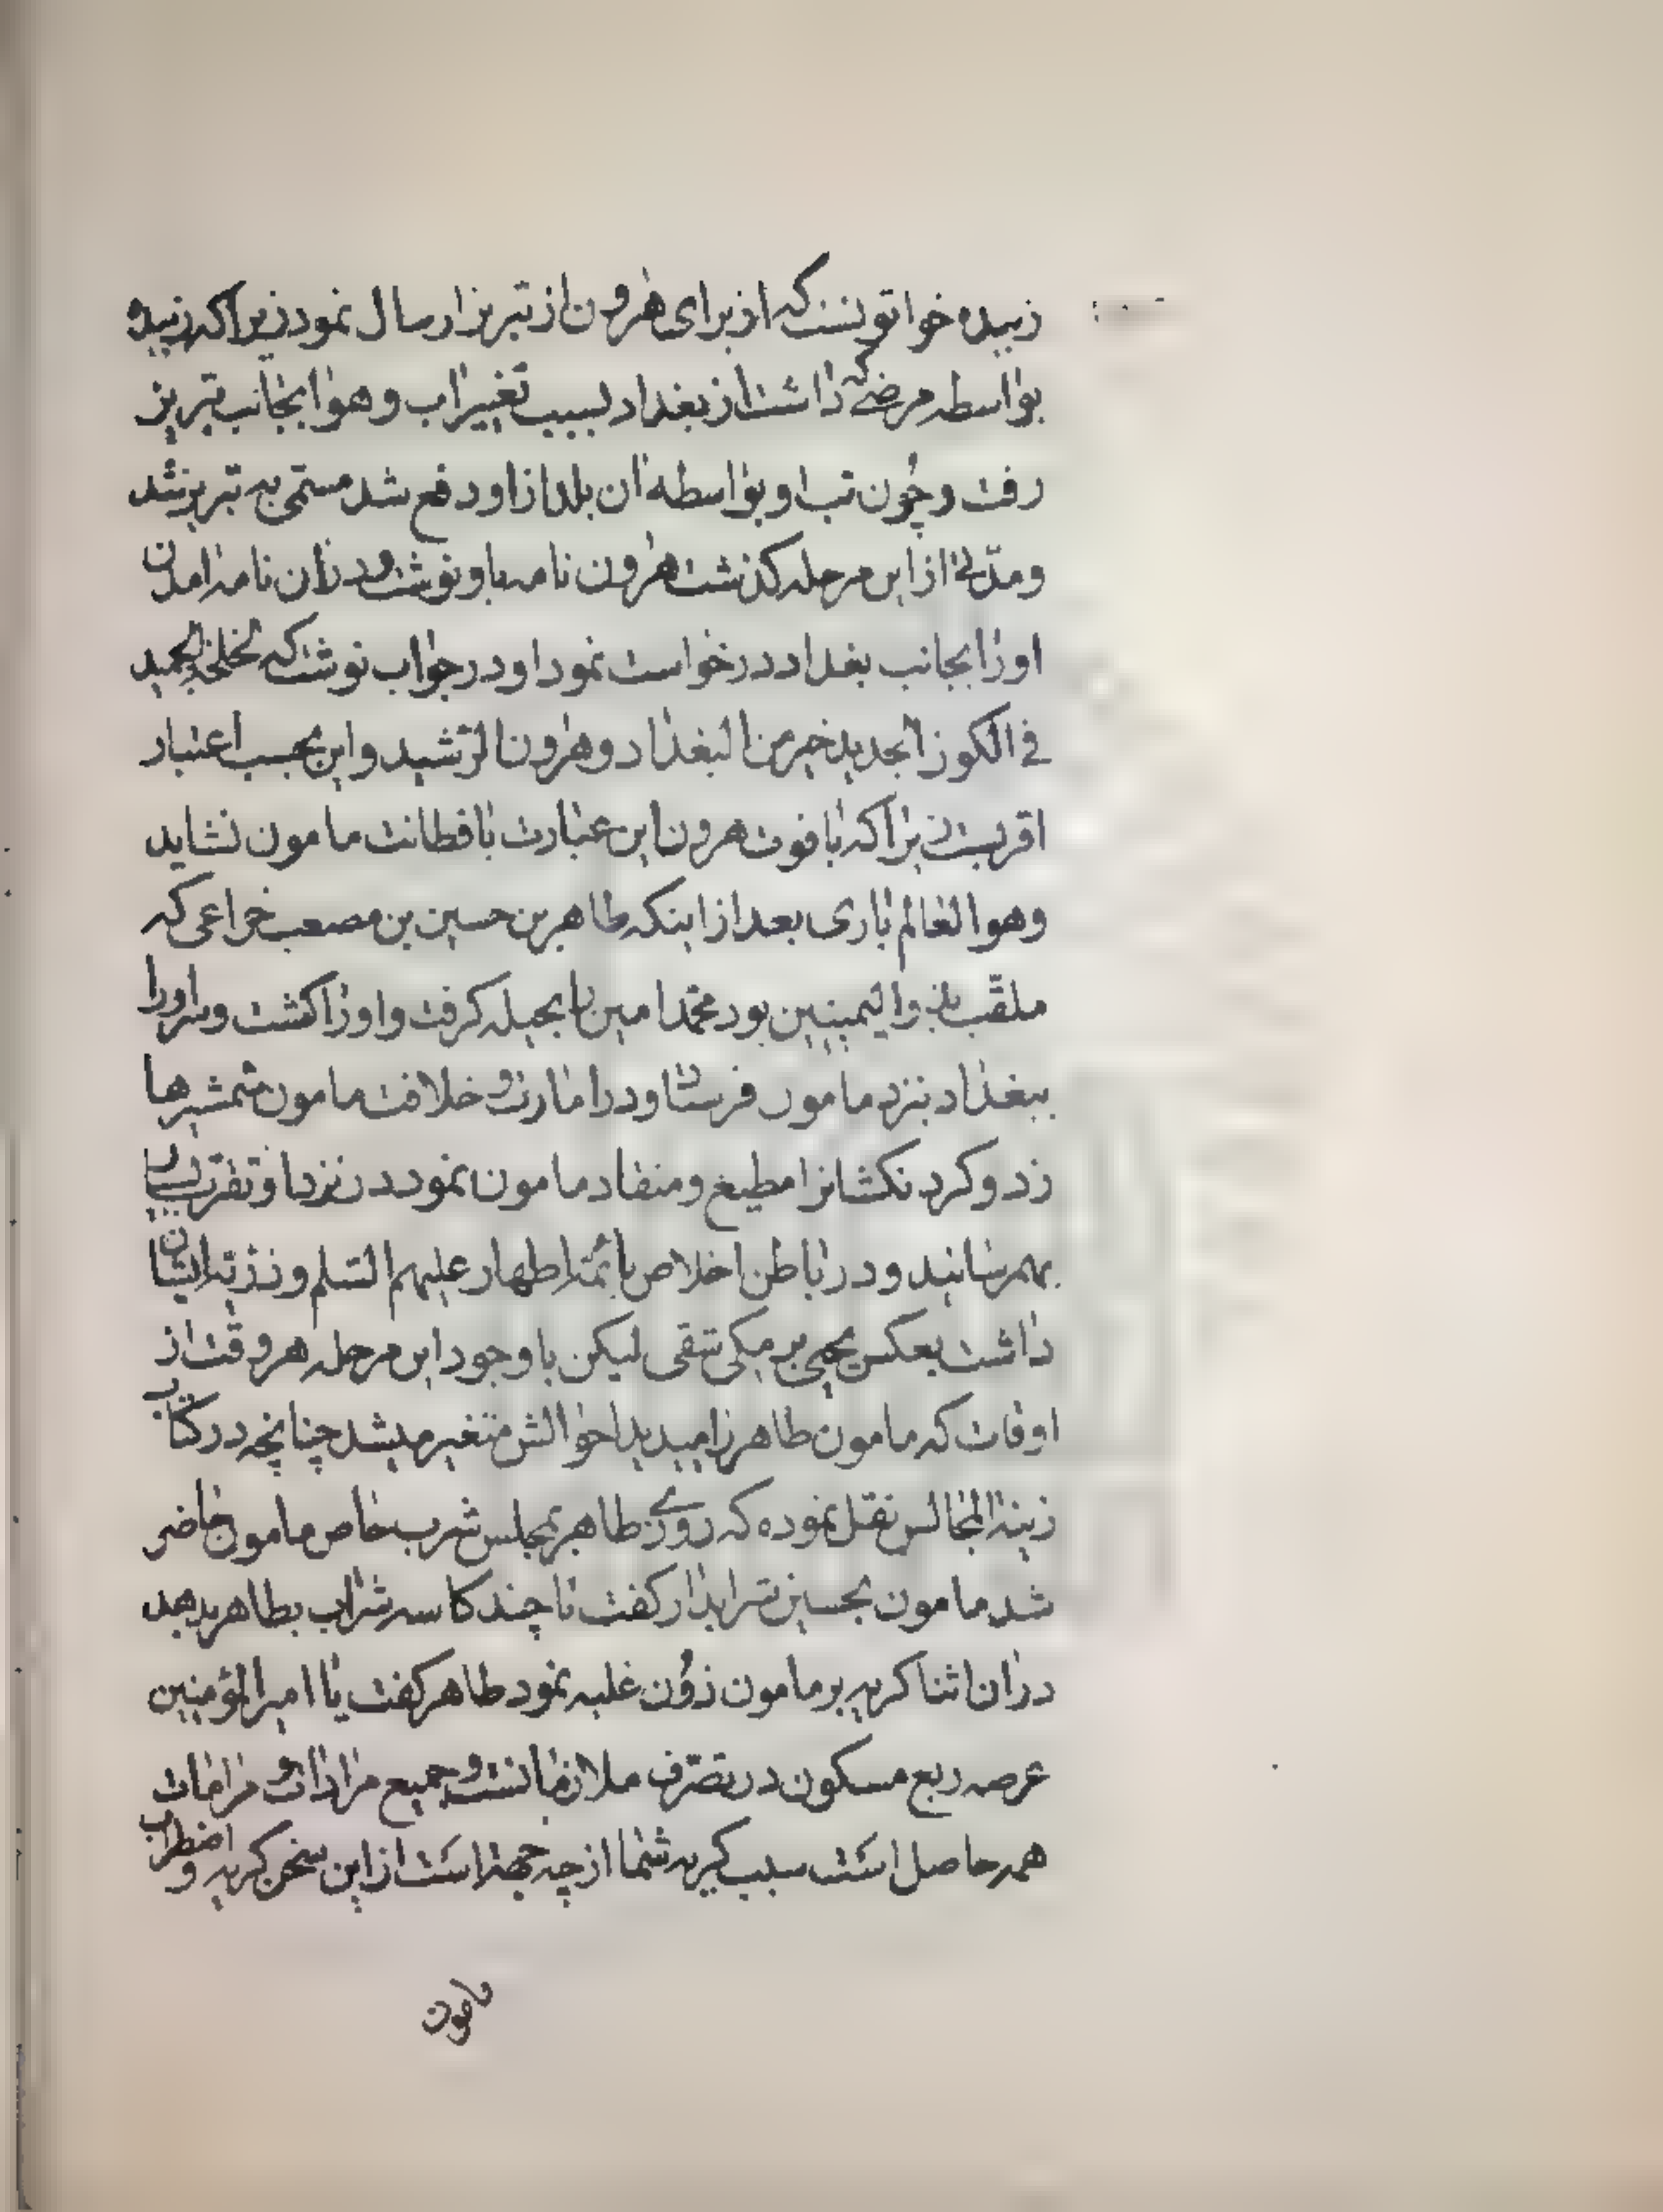 زبیده خواتونست که از برای هرون از تبریز ارسال نمود زیرا که زبیده
بواسطه مرضی که داشت از بغداد بسبب تغییر اب و هوا بجانب تبریز
رفت و چون تب او بواسطه ان بلد از او دفع شد مسمی به تبریز شد
و مدتی از این مرحله کذشت هرون نامه باو نوشت و در ان نامه امدن
اورا بجانب بغداد درخواست نمود او در جواب نوشت که
فی الکوز الجدید خیر من البغداد و هرون الرشید و این بحسب اعتبار
اقربست زیرا که با فوت هرون این عبارت با فطانت مامون نشاید
و هو العالم باری بعد از اینکه طاهر بن حسین بن مصعب خزاعی که
ملقب بذو الیمینین بود محمد امین را بحیله کرفت و اورا کشت و سر اورا
ببغداد بنزد مامون فرستاد و در امارت و خلافت مامون شمشیرها
زد و کردنکشانرا مطیع و منقاد مامون نمود در نزد او تقرب بسیار
بهم رسانید و در باطن اخلاص بائمه اطهار علیهم السلم و ذریه ایشان
داشت بعکس یحیی برمکی شقی لیکن با وجود این مرحله هر وقت از
اوقات که مامون طاهر را میدید احوالش متغیر میشد چنانچه در کتاب
زینة المجالس نقل نموده که روزی طاهر بمجلس شرب خاص مامون حاضر
شد مامون بحسین شرابدار کفت تا چند کاسه شراب بطاهر بدهد
در ان اثنا کریه بر مامون زون غلبه نمود طاهر کفت یا امیر المؤمنین
عرصه ربع مسکون در تصرف ملازمانست و جمیع مرادات و مرامات
همه حاصل است سبب کریه شما از چه جهة است از این سخن کریه و اضطراب
مامون